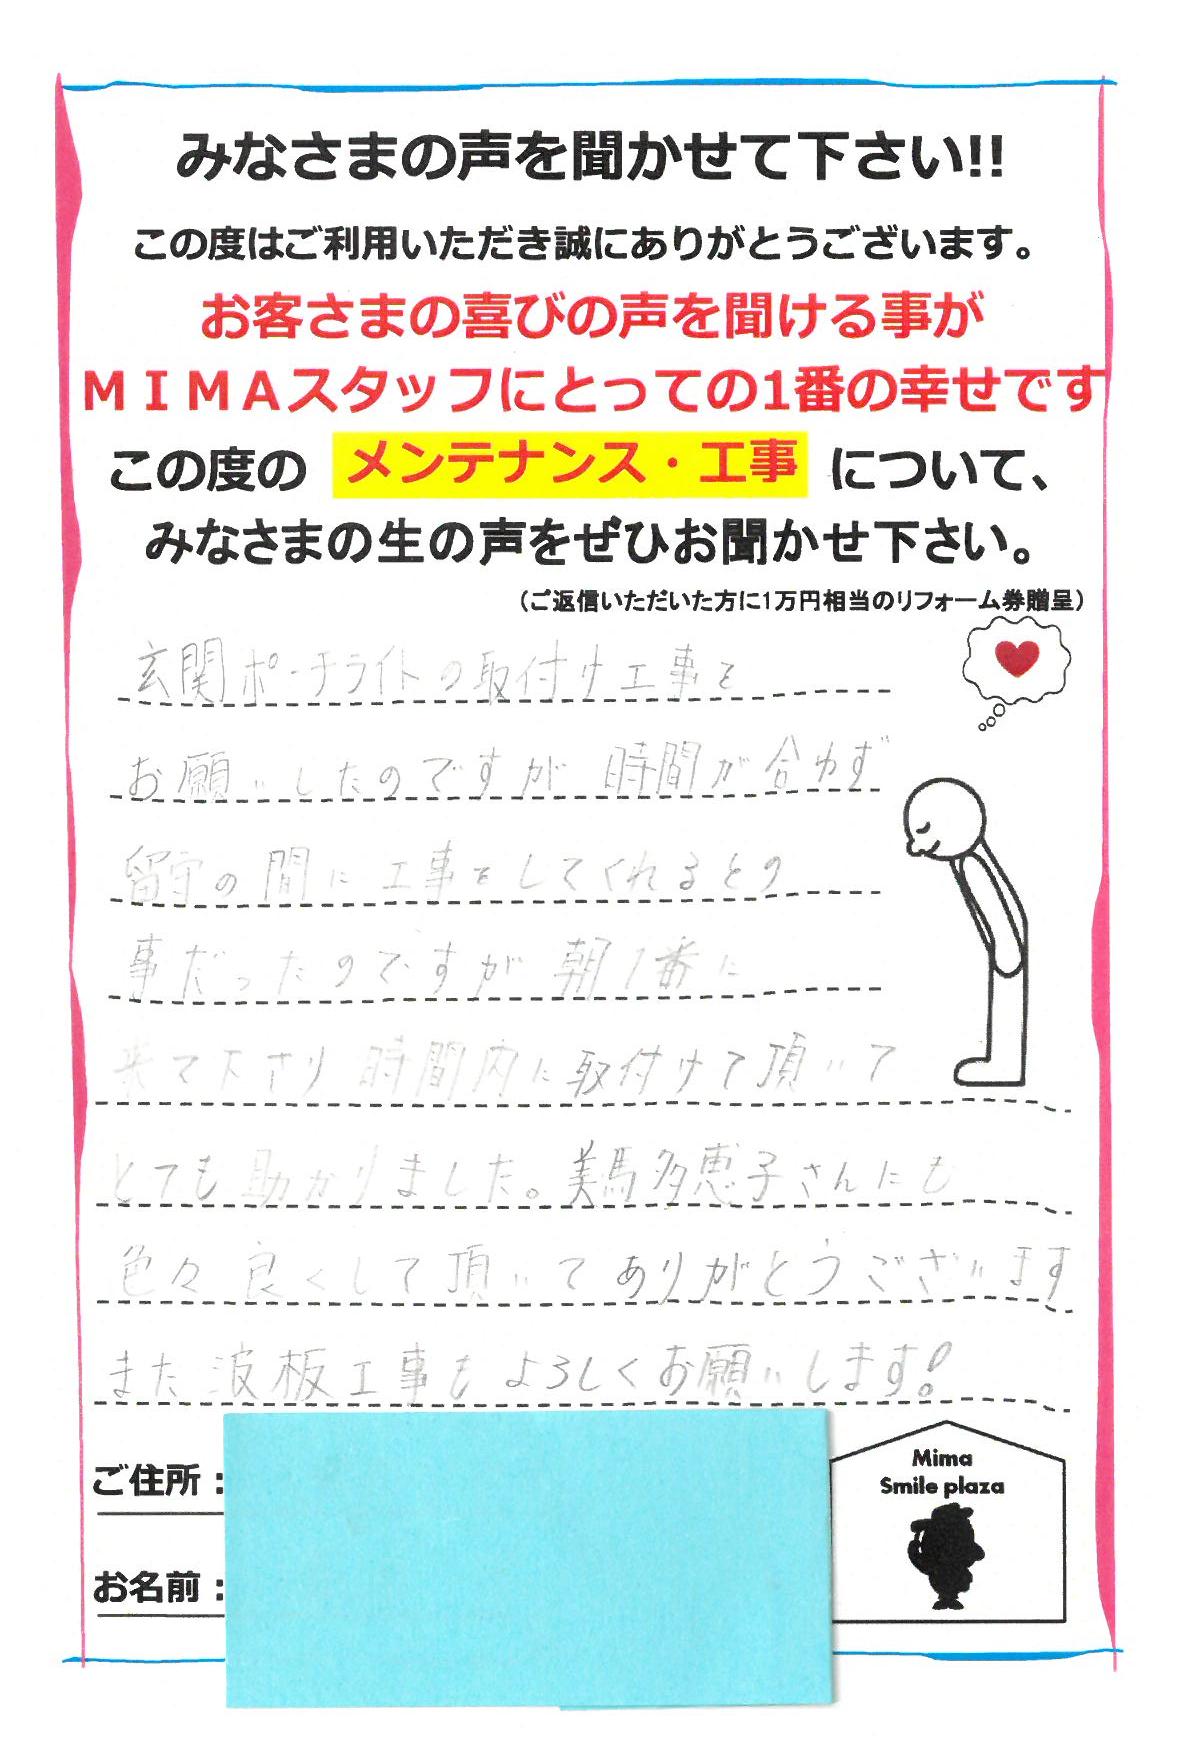 みなさまの声を聞かせて下さい!!
この度はご利用いただき誠にありがとうございます。
お客さまの喜びの声を聞ける事が
ＭＩＭＡスタッフにとっての1番の幸せです
この度の メンテナンス・工事 について、
みなさまの生の声をぜひお聞かせ下さい。
（ご返信いただいた方に1万円相当のリフォーム券贈呈）
玄関ポーチライトの取付け工事を
お願いしたのですが 時間が合わず
留守の間に工事をしてくれるとの
事だったのですが 朝1番に
来て下さり 時間内に取付けて頂いて
とても助かりました。美馬多恵子さんにも
色々良くして頂いてありがとうございます
また波板工事もよろしくお願いします!
ご住所：
お名前：
Mima
Smile plaza